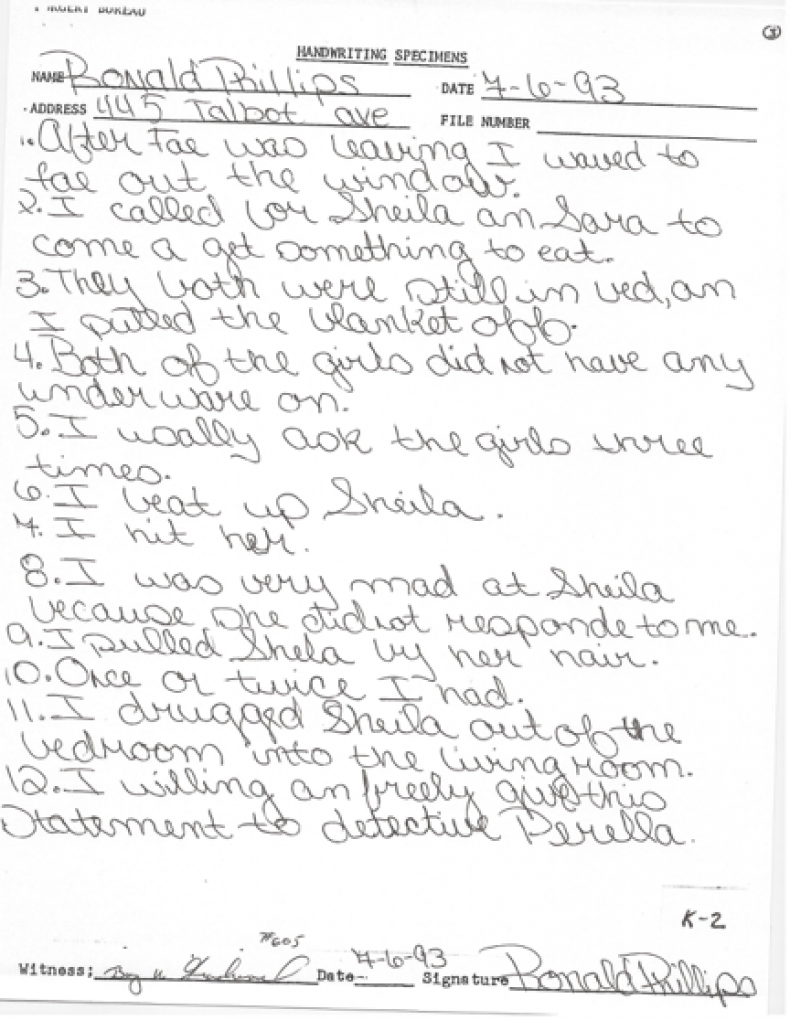 HANDWRITING SPECIMENS
NAME Ronald Phillips DATE 7-6-93
ADDRESS 445 Talbot ave FILE NUMBER
1. After Fae was leaving I waved to
fae out the window.
2. I called for Sheila an Sara to
come a get something to eat.
3. They both were still in bed, an
I pulled the blanket off.
4. Both of the girls did not have any
underware on.
5. I usally ask the girls three
times.
6. I beat up Sheila.
7. I hit her.
8. I was very mad at Sheila
because she did not responde to me.
9. I pulled Shela by her hair.
10. Once or twice I had.
11. I drugged Sheila out of the
bedroom into the living room.
12. I willing an freely give this
Statement to detective Perella.
K-2
#605
Witness: Date 7-6-93 Signature Ronald Phillips